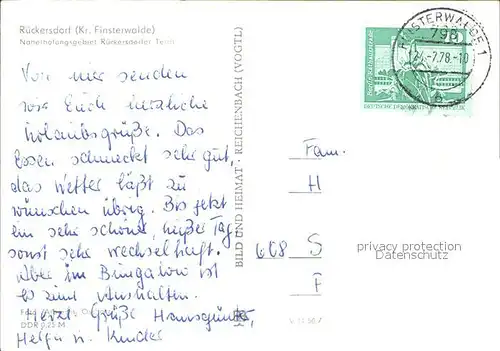 Rückersdorf (Kr. Finsterwalde)
Naherholungsgebiet Rückersdorfer Teich
Von hier senden
wir Euch herzliche
Urlaubsgrüße. Das
Essen schmeckt sehr gut,
das Wetter läßt zu
wünschen übrig. Bis jetzt
ein sehr schöner, heißer Tag
sonst sehr wechselhaft.
Aber im Bungalow ist
es zum Aushalten.
Herzl. Grüße Hansgünter,
Helga u. Kinder
DDR 0,25 M
BILD UND HEIMAT · REICHENBACH (VOGTL)
FINSTERWALDE 1
798
-7.78-10
a
Fam.
H
608 S
F
privacy protection
Datenschutz